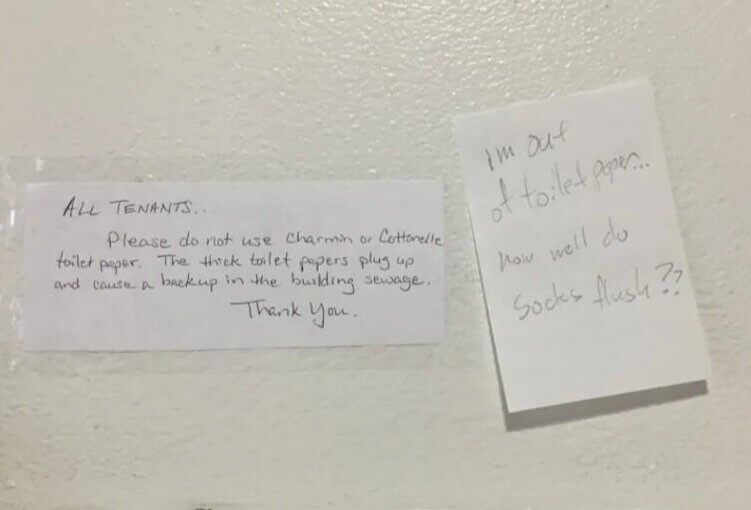 ALL TENANTS...
Please do not use Charmin or Cottonelle
toilet paper. The thick toilet papers plug up
and cause a backup in the building sewage.
Thank You.
im out
of toilet paper...
how well do
socks flush??